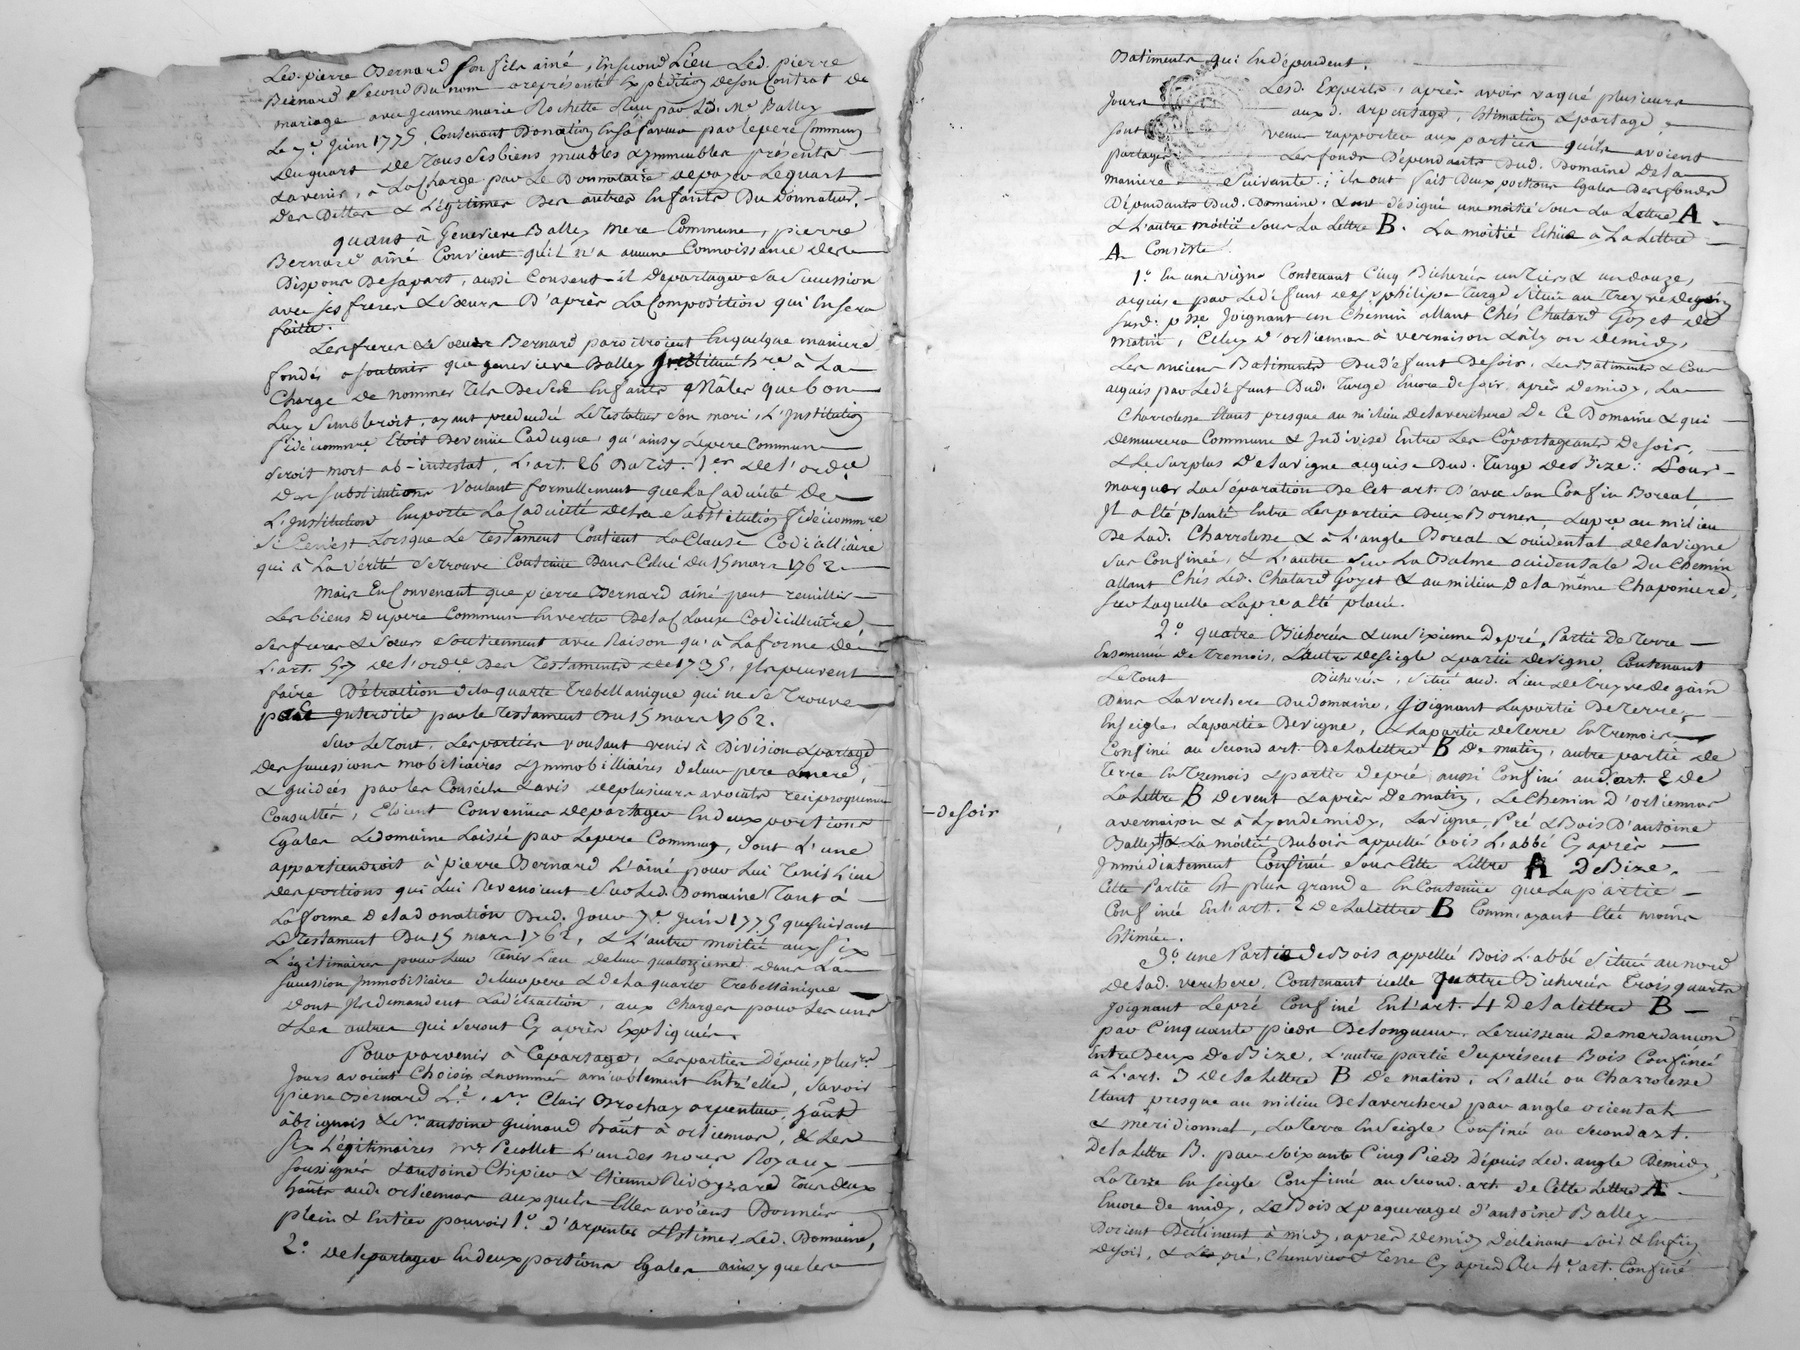 Led. pierre Bernard son fils ainé, En second Lieu Led. pierre
Bernard second Du nom a représenté Expédition de son Contrat de
mariage avec Jeanne marie Rochette Reçu par Led. Me Balley
Le 7e. Juin 1775, Contenant Donation En sa faveur par le pere Commun
du quart de tous ses biens meubles & Immeubles présents
& avenir, a La Charge par Le Donnataire de payer Le quart
Des Dettes & Légitimes Des autres Enfants Du Donnateur.
quant à Genevieve Balley mere Commune, pierre
Bernard ainé Convient qu'il n'a aucune Connoissance de
Disposé De sa part, aussi Consent-il De partager sa Succession
avec ses freres & Sœurs D'après La Composition qui En sera
faitte.
Les freres & Sœurs Bernard paroitroient En quelque maniere
fondés a soutenir que genevieve Balley Instituée hre à La
Charge De nommer Tels De ses Enfants Mâles que bon
Luy Sembleroit, ayant predecedé Le Testateur son mari, L'Institution
fidéicommre Etoit Devenüe Caduque, qu'ainsy Le pere Commun
Seroit mort ab-intestat, L'art. 26 Du Tit. 1er de l'ordce
Des substitutions Voulant formellement que La Caducité De
L'Institution Emporte La Caducité de la Substitution fidéicommre
Si Ce n'est Lorsque Le Testament Contient La Clause Codicilliaire
qui à La Vérité Se trouve Contenue Dans Celui Du 15 mars 1762.
Mais En Convenant que pierre Bernard ainé peut recuillir
Les biens Du pere Commun En vertu De la Clause Codicilliaire
Ses freres & Sœurs Soutiennent avec Raison qu'à La forme de
L'art. de l'ordce Des Testaments de 1735, Ils peuvent
faire Détraction de la quarte Trebellanique qui ne Se Trouve
pas Interdite par le Testament Du 15 mars 1762.
Sur Le Tout, Les parties voulant venir à Division & partage
Des Successions mobiliaires & Immobilliaires de leur pere & mere,
& guidées par les Conseils & avis de plusieurs avocats reciproquemt
Consultés, Etoient Convenues De partager En deux portions
Egales Le domaine Laissé par Le pere Commun, Dont L'une
appartiendroit à pierre Bernard L'ainé pour Lui Tenir Lieu
Des portions qui Lui Revenoient Sur Led. Domaine Tant à
La forme De la donation Dud. Jour 7e Juin 1775 que suivant
Le Testament Du 15 mars 1762, & L'autre moitié aux Six
Légitimaires pour Leur Tenir Lieu De leur quatorzieme dans La
Succession Immobiliaire de leur pere & de La quarte Trebellanique
Dont Ils demandent La détraction, aux Charges pour Les uns
& Les autres qui Seront Cy après Expliquées.
Pour parvenir à Ce partage, Les parties Depuis plusrs
Jours avoient Choisis & nommés amiablement Entr'elles, Savoir
pierre Bernard L'é, Sr. Clair Brochay arpenteur hâbt
à brignais & Sr antoine Guinand hâbt à orliennas, & Les
Six Légitimaires Mr Pecollet L'un des nores Royaux
Soussignés & antoine Chipier & Etienne Tous deux
hâbts aud. orliennas auxquels Elles avoient Donnés
plein & Entier pouvoir 1.° d'arpenter & Estimer Led. Domaine,
2.° De le partager En deux portions Egales ainsy que les
Batiments qui En dépendent.
Lesd. Experts, après avoir vaqué plusieurs
Jours aux d. arpentage, Estimation & partage,
sont venus rapporter aux parties qu'ils avoient
partagé Les fonds Dépendants Dud. Domaine De la
maniere Suivante; ils ont fait Deux portions Egales Des fonds
Dépendants Dud. Domaine, & ont désigné une moitié sous La Lettre A
& L'autre moitié sous La lettre B. La moitié Echüe à La Lettre
A Consiste.
1.° En une vigne Contenant Cinq Bicherées un Tiers & un douze,
acquise par Led. défunt de Sr philipe Turge Située au Treyve de gain
Susd. psse Joignant un Chemin allant Chés Chatard Goyet de
matin, Celuy d'orliennas à vernaison & à Lyon de midy,
Les anciens Batiments Du défunt De soir, Les Batiments & Cour
acquis par Led. défunt Dud. Turge Encore de soir après De midy, La
Charrolesse Etant presque au milieu De la verchere De Ce Domaine & qui
demeurera Commune & Indivise Entre Les Copartageants De soir,
& Le Surplus De la vigne acquise Dud. Turge de Bize: Pour
marquer La Séparation De Cet art. D'avec Son Confin Boreal
Il a été planté Entre Les parties Deux Bornes, La pre au milieu
De Lad. Charrolesse & à L'angle Boreal & occidental de la vigne
Sus Confinée, & L'autre Sur La Balme occidentale Du Chemin
allant Chés Led. Chatard Goyet & au milieu De la même Chaponiere,
Sur Laquelle La pre a été placée.
2.° quatre Bicherées & un Sixieme De pré, Partie De Terre
Ensemencée De Tremois, L'autre de Seigle & partie De vigne, Contenant
Le Tout Bicherées, Situé aud. Lieu de Treyve de gain
Dans La verchere Du domaine, Joignant La partie De Terre
En Seigle, La partie De vigne, & La partie de Terre En Tremois
Confiné au Second art. De La lettre B De matin, autre partie de
Terre En Tremois & partie De pré aussi Confiné aud. art. 2 de
La Lettre B De vent & après De matin, Le Chemin D'orliennas
a vernaison & à Lyon de midy, La vigne, Pré & Bois D'antoine
Balley & La moitié Du bois appellé bois L'abbé Cy après
-de soir
Immédiatement Confiné sous Cette Lettre A De Bize.
Cette Partie Est plus grande En Contenue que La partie
Confinée En L'art. 2 De La lettre B Comme ayant Eté moins
Estimée.
3.° une Partie De Bois appellé Bois L'abbé Situé au nord
De Lad. verchere, Contenant icelle quatre Bicherées Trois quarts
Joignant Le pré Confiné En L'art. 4 De La lettre B
par Cinquante pieds De Longueur, Le ruisseau De merdanson
Entre Deux De Bize, L'autre partie Du présent Bois Confinée
à L'art. 3 De La Lettre B De matin, L'allée ou Charrolesse
Etant presque au milieu De La verchere par angle oriental
& méridionnel, La Terre En Seigle Confiné au Second art.
De La Lettre B. par Soixante Cinq Pieds Depuis Led. angle De midy,
La Terre En Seigle Confiné au Second. art. de Cette Lettre A
Encore De midy, Le Bois & paquerage d'antoine Balley
D'orient Déclinant à midy, après De midy Déclinant Soir & Enfin
De soir, & Le pré, Cheneviere & Terre Cy après Au 4e. art. Confiné